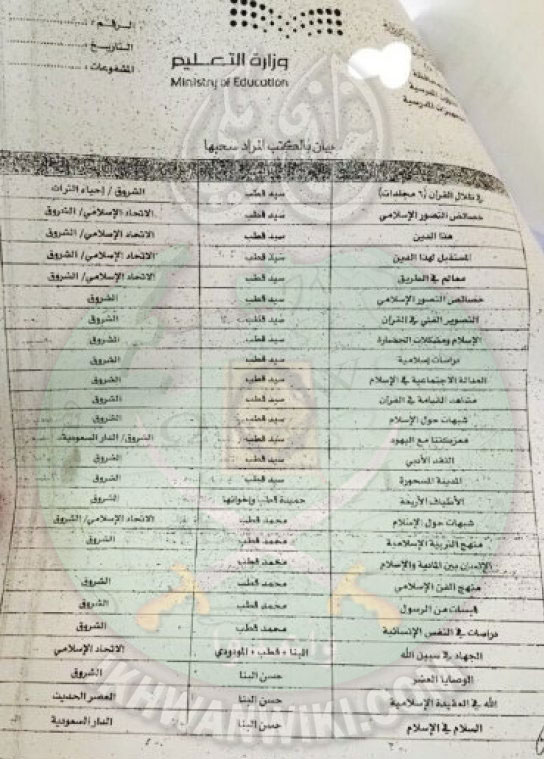 الرقم :
التاريخ :
المشفوعات :
وزارة التعليم
Ministry of Education
بيان بالكتب المراد سحبها
في ظلال القرآن (٦ مجلدات) سيد قطب الشروق / إحياء التراث
خصائص التصور الإسلامي سيد قطب الاتحاد الإسلامي/ الشروق
هذا الدين سيد قطب الاتحاد الإسلامي/ الشروق
المستقبل لهذا الدين سيد قطب الاتحاد الإسلامي/ الشروق
معالم في الطريق سيد قطب الاتحاد الإسلامي/ الشروق
خصائص التصور الإسلامي سيد قطب الشروق
التصوير الفني في القرآن سيد قطب الشروق
الإسلام ومشكلات الحضارة سيد قطب الشروق
دراسات إسلامية سيد قطب الشروق
العدالة الاجتماعية في الإسلام سيد قطب الشروق
مشاهد القيامة في القرآن سيد قطب الشروق
شبهات حول الإسلام سيد قطب الشروق
معركتنا مع اليهود سيد قطب الشروق/ الدار السعودية
النقد الأدبي سيد قطب الشروق
المدينة المسحورة سيد قطب الشروق
الأطياف الأربعة حميدة قطب وإخوانها الشروق
شبهات حول الإسلام محمد قطب الاتحاد الإسلامي/ الشروق
منهج التربية الإسلامية محمد قطب الشروق
الإنسان بين المادية والإسلام محمد قطب
منهج الفن الإسلامي محمد قطب الشروق
قبسات من الرسول محمد قطب الشروق
دراسات في النفس الإنسانية محمد قطب الشروق
الجهاد في سبيل الله البنا + قطب + المودودي الاتحاد الإسلامي
الوصايا العشر حسن البنا الشروق
الله في العقيدة الإسلامية حسن البنا العصر الحديث
السلام في الإسلام حسن البنا الدار السعودية
IKHWANWIKI.COM